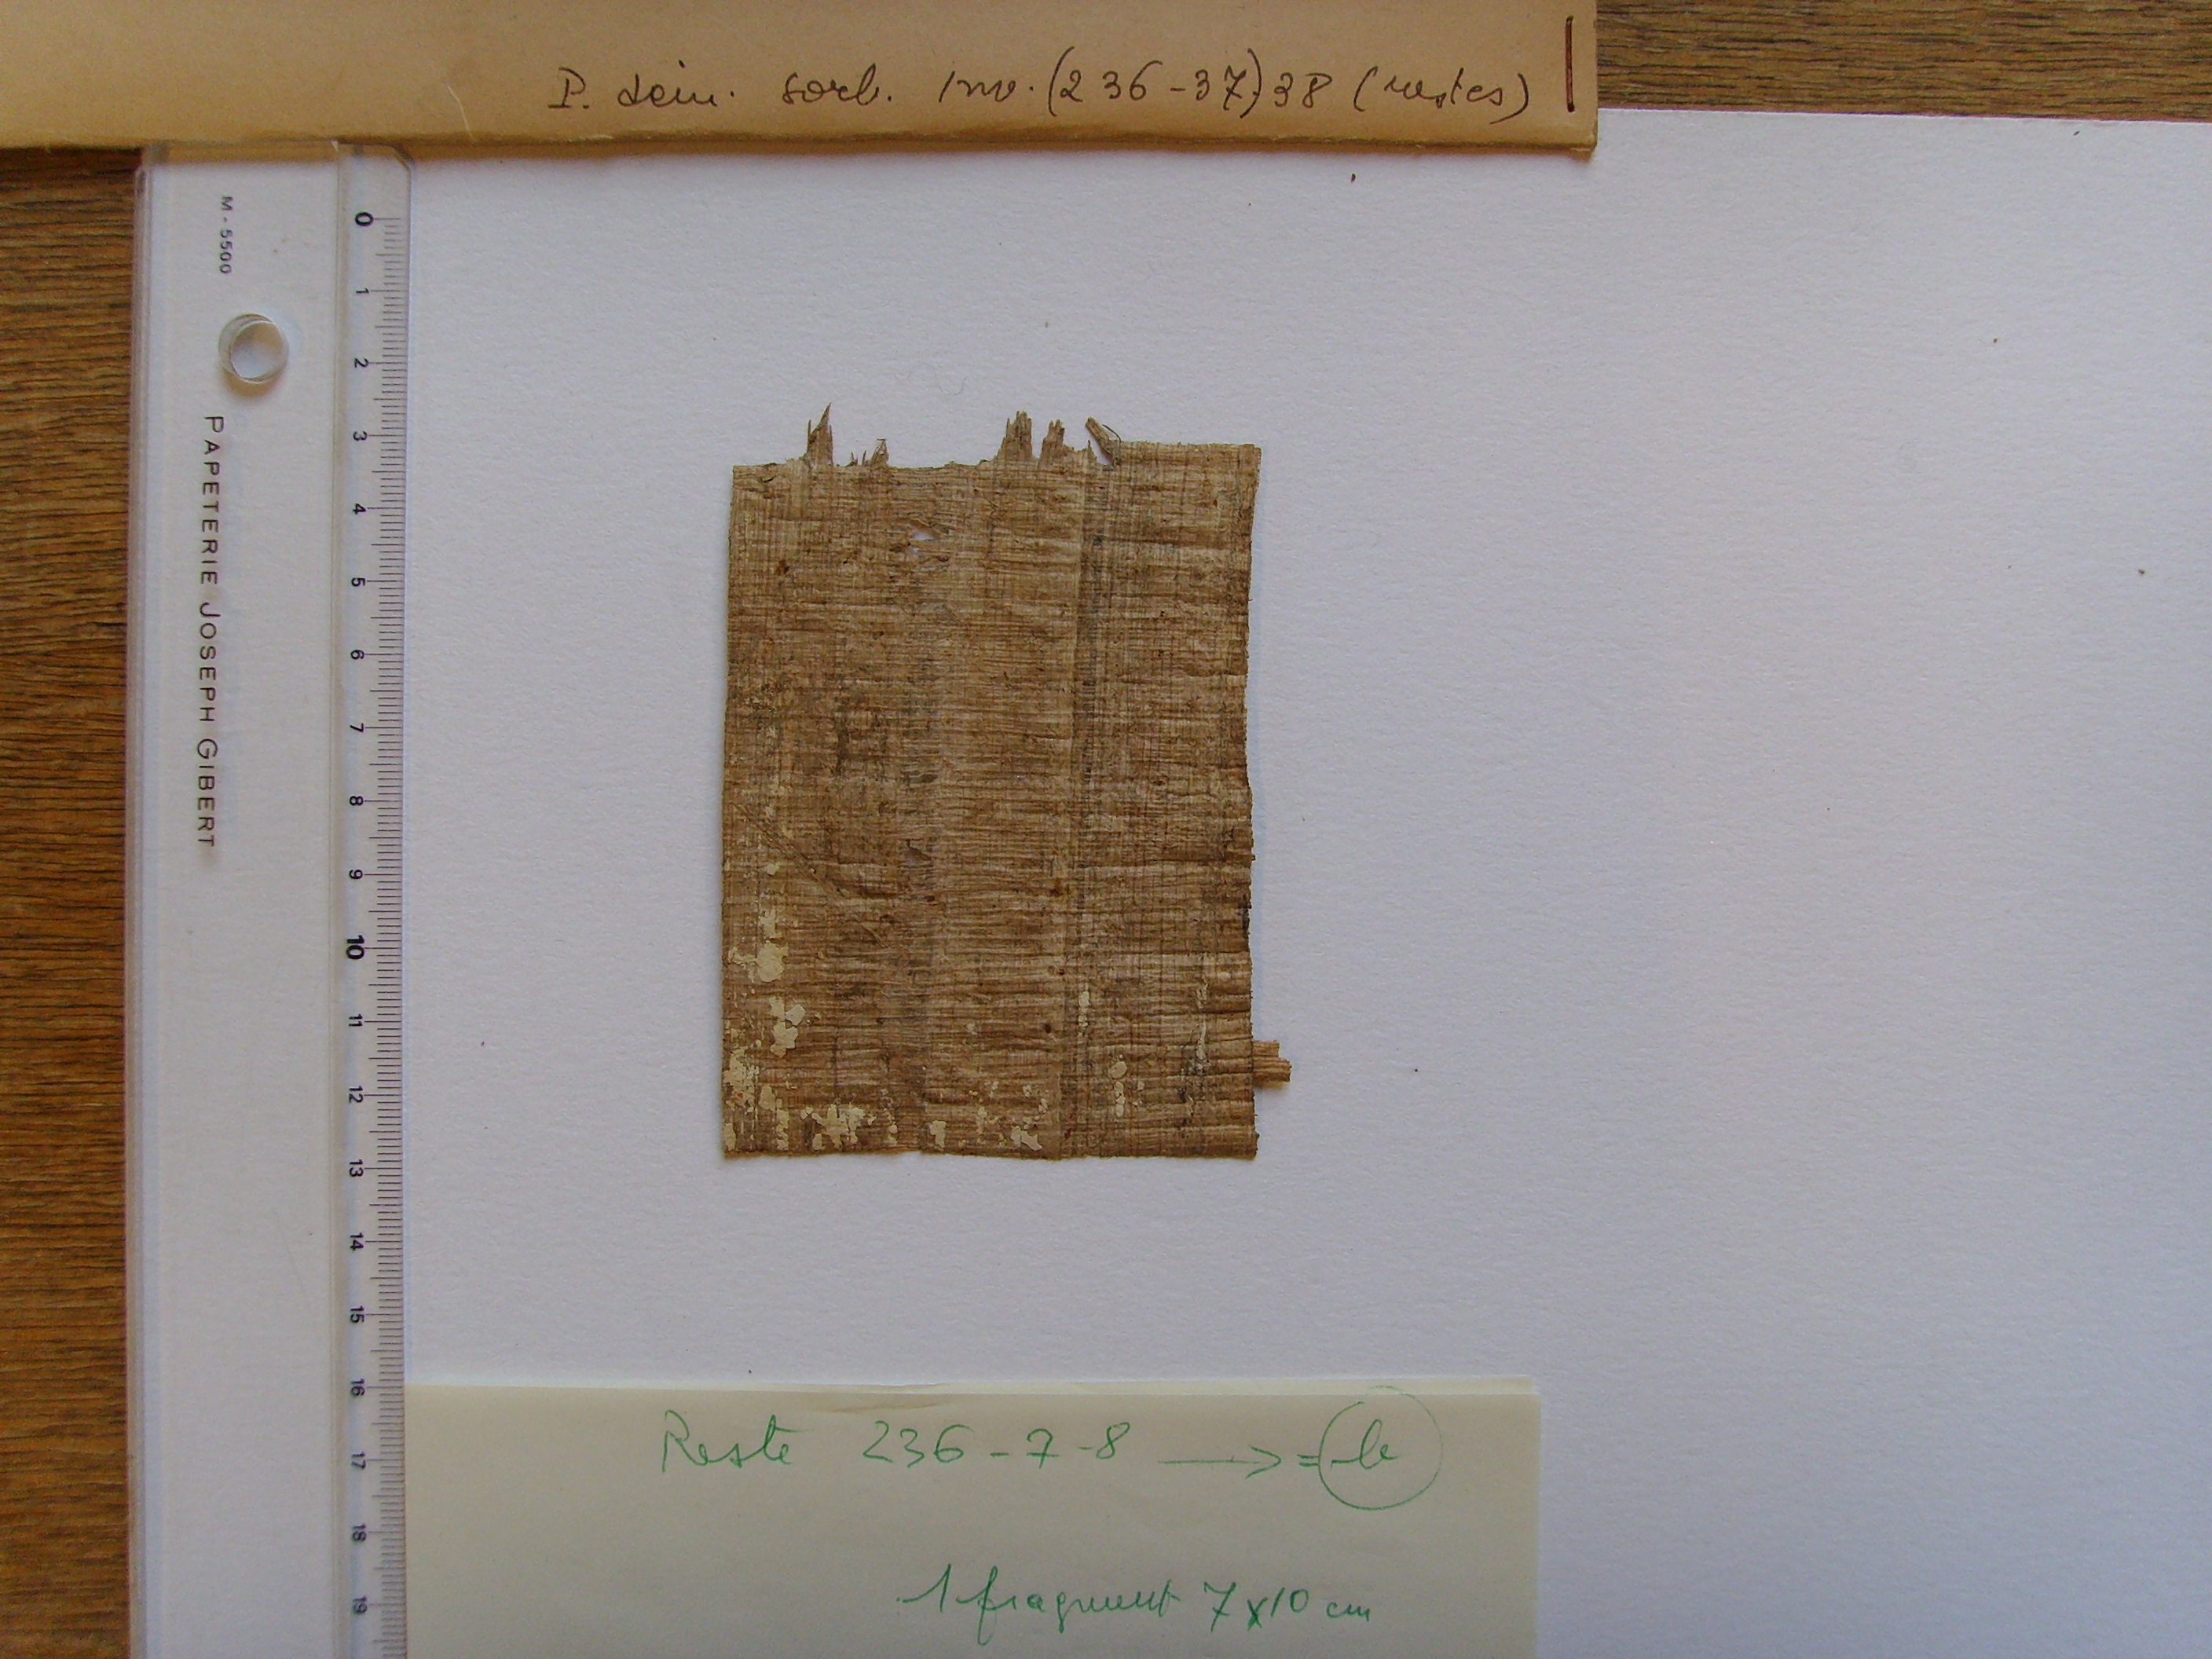 P. sem. sorb. inv. (236-37) 38 (restes)
M-5500
PAPETERIE JOSEPH GIBERT
0
1
2
3
4
5
6
7
8
9
10
11
12
13
14
15
16
17
18
19
Reste 236-7-8 → = b
1 fragment 7x10 cm